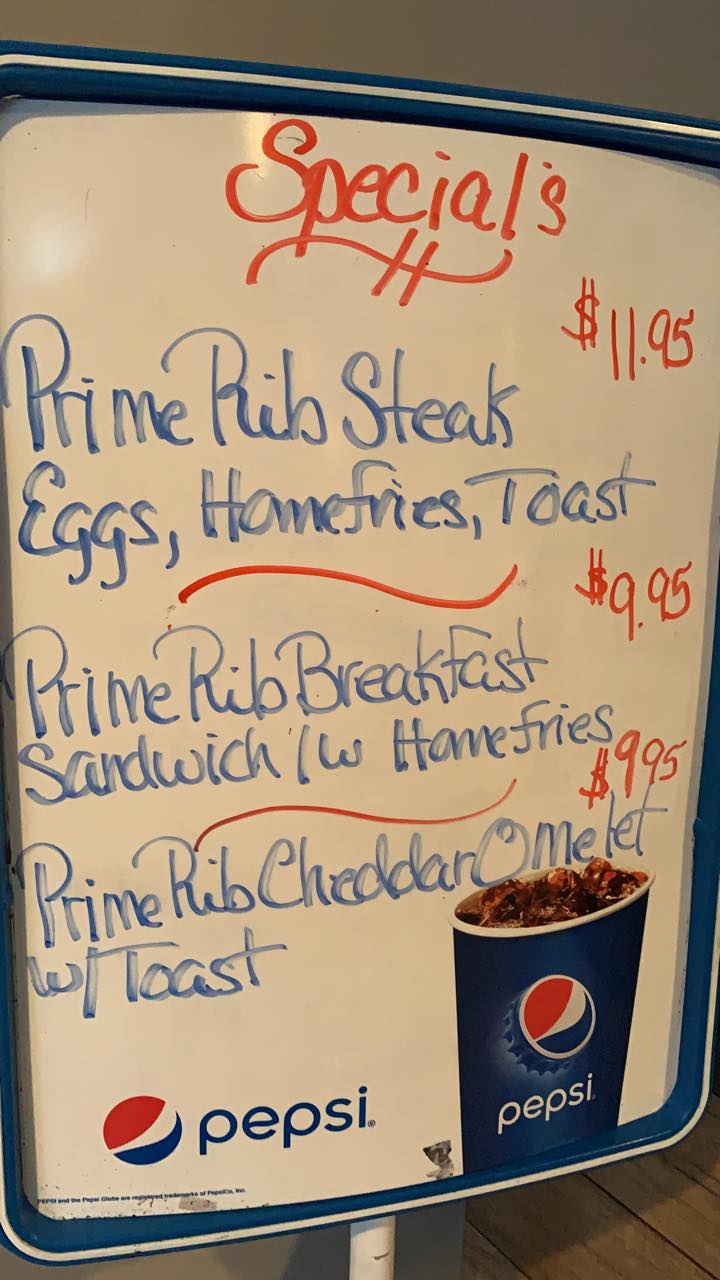 Special's
$11.95
Prime Rib Steak
Eggs, Homefries, Toast
$9.95
Prime Rib Breakfast
Sandwich /w Homefries
$9.95
Prime Rib Cheddar Omelet
w/ Toast
pepsi
pepsi®
PEPSI and the Pepsi Globe are registered trademarks of PepsiCo, Inc.